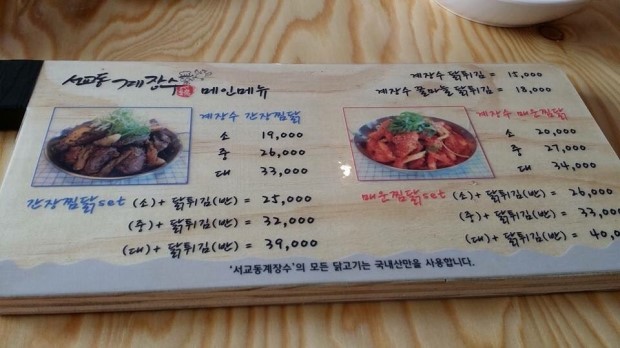 서교동 계장수 메인메뉴
계장수 닭튀김 = 15,000
계장수 꽃마늘 닭튀김 = 18,000
계장수 간장찜닭
소 19,000
중 26,000
대 33,000
계장수 매운찜닭
소 20,000
중 27,000
대 34,000
간장찜닭set (소)+ 닭튀김(반) = 25,000
(중)+ 닭튀김(반) = 32,000
(대)+ 닭튀김(반) = 39,000
매운찜닭set (소)+ 닭튀김(반) = 26,000
(중)+ 닭튀김(반) = 33,000
(대)+ 닭튀김(반) = 40,0
'서교동계장수'의 모든 닭고기는 국내산만을 사용합니다.